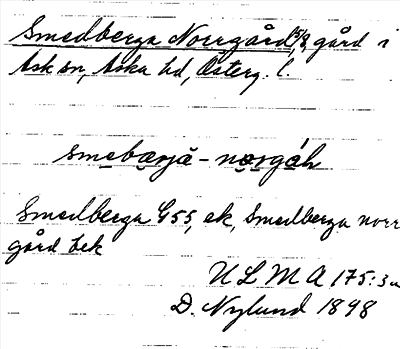 Smedberga Norrgård, 5/8, gård i
Ask sn, Aska hd, Österg. l.
smebærja - norgáh
Smedberga G55, ek, Smedberga norr
gård bek
ULMA 175:3a
D. Nylund 1898